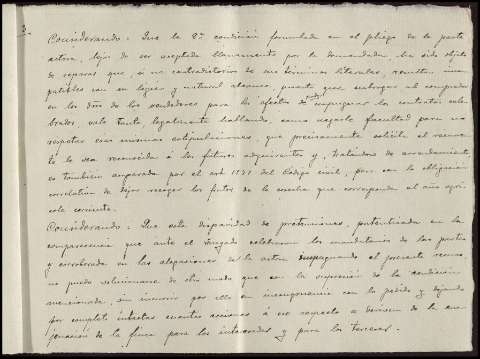 Considerando: Que la 2ª condición formulada en el pliego de la parte
actora, lejos de ser aceptada llanamente por la demandada, ha sido objeto
de reparos que, si no contradictorios de sus términos literales, resultan incom
patibles con su lógico y natural alcance, puesto que subrogar al comprador
en los dros de los vendedores para los efectos de poder impugnar los contratos cele
brados, vale tanto legalmente hablando, como negarle facultad para no
respetar esas mismas estipulaciones que precisamente solicita el recurren
te le sea reconocida á los futuros adquirentes y, tratándose de arrendamiento,
es también amparada por el art 1571 del Código civil, pero con la obligación
correlativa de dejar recoger los frutos de la cosecha que corresponda al año agrí
cola corriente.
Considerando: Que esta disparidad de pretensiones, patentizada en la
comparecencia que ante el Juzgado celebraron los mandatarios de las partes
y corroborada en las alegaciones de la actora impugnando el presente recurso,
no puede solucionarse de otro modo que con la supresión de la condición
mencionada, sin incurrir por ello en incongruencia con lo pedido y dejando
por completo intactas cuantas acciones á su respecto se deriven de la ena-
jenación de la finca para los interesados y para los terceros.